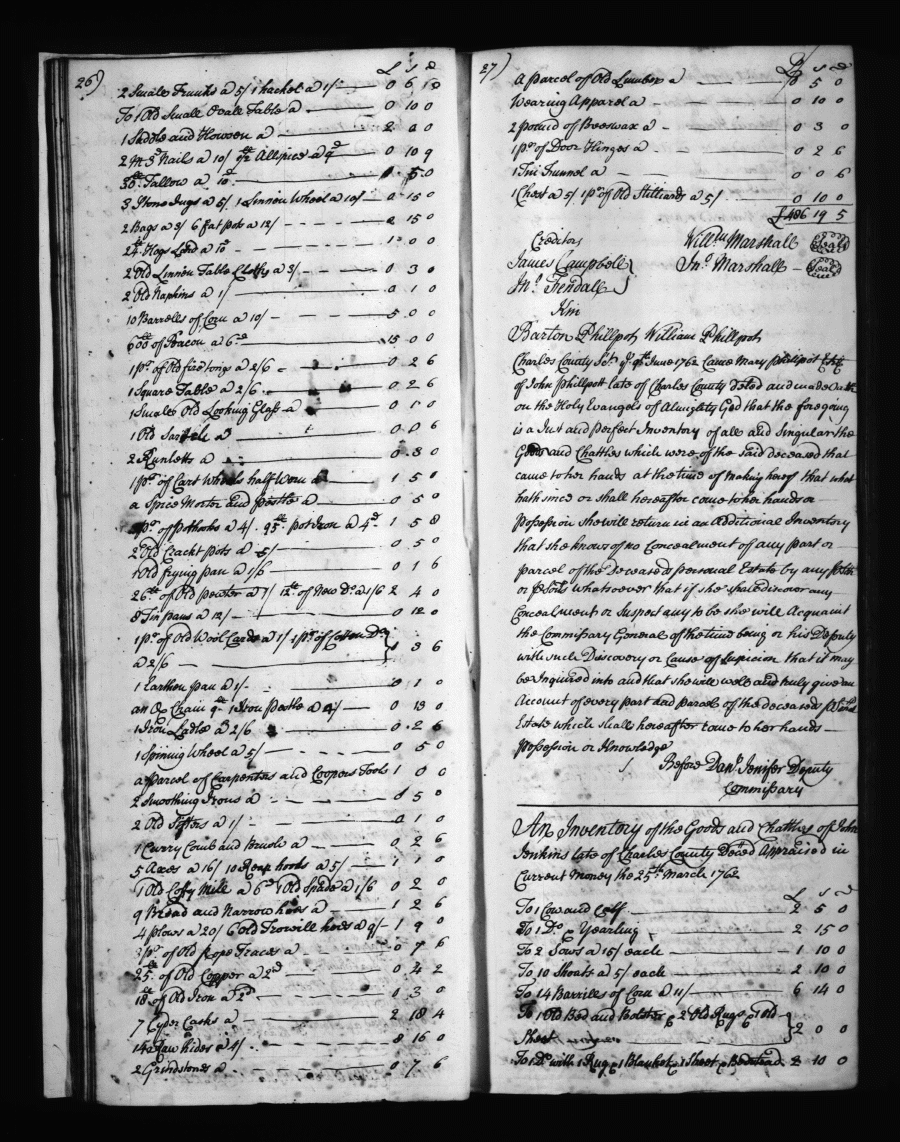 26)
L s d
2 Small Trunks a 5/ 1 hachet a 1/ 0 6 0
To 1 Old Small Ovall Table a 0 10 0
1 Saddle and Howsen a 2 0 0
2 M 8d Nails a 10/ Allspice a 9d 0 10 9
Tallow a 10d 5 0
3 Stone Jugs a 5/ 1 Linnen Wheel a 10/ 0 15 0
2 Bags a 3/ 6 fat pots a 12/ 2 15 0
24lb Hogs Lard a 10d 1 0 0
2 Old Linnen Table Cloths a 3/ 0 3 0
2 Old Napkins a 1/ 0 1 0
10 Barrells of Corn a 10/ 5 0 0
600lb of Bacon a 6d 15 0 0
1 pr of Old fire tongs a 2/6 0 2 6
1 Square Table a 2/6 0 2 6
1 Small Old Looking Glass a 0 1 0
1 Old a 0 0 6
2 Runletts a 0 3 0
1 pr of Cart Wheels half Worn a 1 5 0
a Spice Morter and pestle a 0 5 0
pr of pothooks a 4/ 95lb pot Iron a 4d 1 5 8
2 Old Crackt pots a 5/ 0 5 0
1 Old frying pan a 1/6 0 1 6
26lb of Old pewter a 7/ 12lb of New Do a 1/6 2 4 0
8 Tin pans a 12/ 0 12 0
1 pr of Old Wool Cards a 1/ 1 pr of Cotton Do
a 2/6 3 6
1 Earthen pan a 1/ 0 1 0
an Ox Chain 1 Iron Pestle a 4/ 0 13 0
1 Iron Ladle a 2/6 0 2 6
1 Spinnig Wheel a 5/ 0 5 0
a parcel of Carpenters and Coopers Tools 1 0 0
2 Smoothing Irons a 5 0
2 Old Sifters a 1/ 0 1 0
1 Curry Comb and Brush a 0 2 6
5 Axes a 16/ 10 Reap hooks a 5/ 1 1 0
1 Old Coffy Mill a 6d 1 Old Spade a 1/6 0 2 0
9 Broad and Narrow hoes a 1 2 6
4 plows a 20/ 6 old Trowill hoes a 9/ 1 9 0
pr of Old Rope Traces a 0 7 6
25lb of Old Copper a 2d 0 4 2
18lb of Old Iron a 2d 0 3 0
7 Cyder Casks a 2 18 4
Raw hides a 4/ 8 16 0
2 Grindstones a 0 7 6
27)
L s d
A parcel of Old Lumber a 0 5 0
Wearing Apparel a 0 10 0
2 pound of Beeswax a 0 3 0
1 pr of Door Hinges a 0 2 6
1 Tin Funnel a 0 0 6
1 Chest a 5/ 1 pr of Old Stilliards a 5/ 0 10 0
£486 19 5
Creditors Willm Marshall Seal
James Campbell } Jno Marshall Seal
Jno Tendall }
Kin
Barton Phillpot William Phillpot
Charles County Sct 9th June 1762 Came Mary Philipot
of John Phillpott late of Charles County Deced and made Oath
on the Holy Evangels of Almighty God that the foregoing
is a Just and perfect Inventory of all and Singular the
Goods and Chattles which were of the said deceased that
came to her hands at the time of making hereof that what
hath since or shall hereafter come to her hands or
Possession she will return in an Additional Inventory
that she knows of no Concealment of any part or
parcel of the Deceaseds personal Estate by any person
or persons whatsoever that if she shall discover any
Concealment or Suspect any to be she will Acquaint
the Commissary General of the time being or his Deputy
with such Discovery or Cause of Suspicion that it may
be Inquired into and that she will well and truly give an
Account of every part and parcel of the deceaseds personal
Estate which shall hereafter come to her hands
Possession or Knowledge
Before Danl Jenifer Deputy
Commissary
An Inventory of the Goods and Chattles of John
Jenkins late of Charles County Deced Appraised in
Current Money the 25th March 1762
L s d
To 1 Cow and Calf 2 5 0
To 1 Do & Yearling 2 15 0
To 2 Sows a 15/ each 1 10 0
To 10 Shoats a 5/ each 2 10 0
To 14 Barrills of Corn a 11/ 6 14 0
To 1 Old Bed and Bolster & 2 Old Rugs & 1 Old
Sheet } 2 0 0
To 1 Do with 1 Rug & 1 Blanket & 1 Sheet & Bedstead 2 10 0